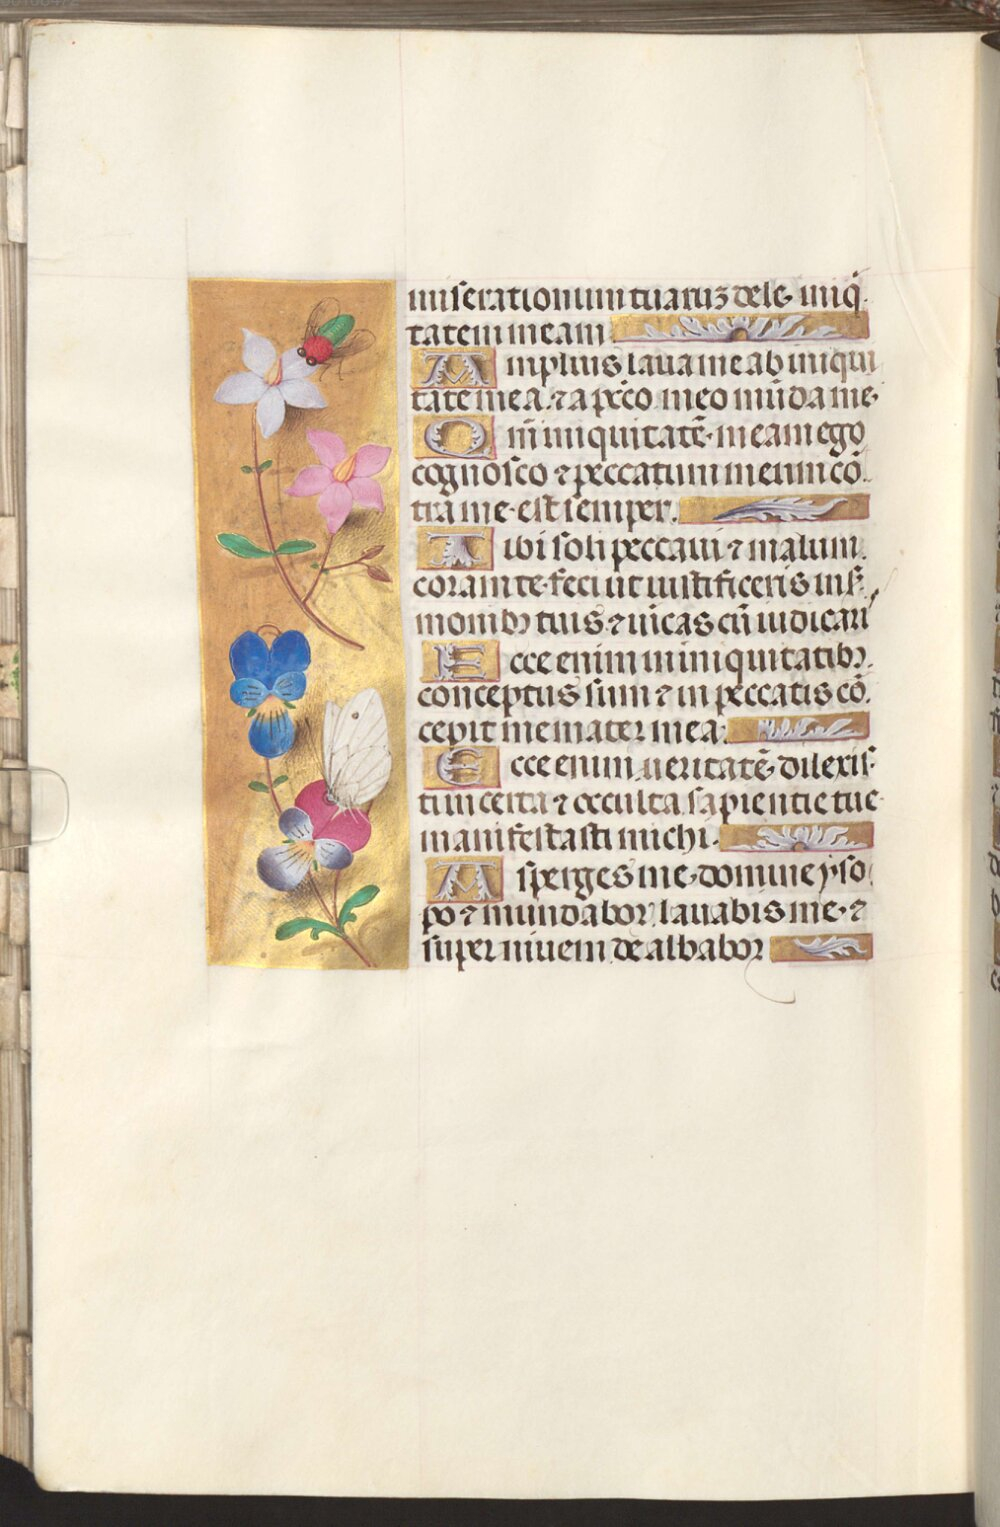 miserationum tuarūꝫ dele iniq̄
tatem meam
Amplius lava me ab iniqui
tate mea ⁊ a pc̄c̄o meo mūda me
Qm̄ iniquitatē meam ego
cognosco ⁊ peccatum meum cō
tra me est semper.
Tibi soli peccavi ⁊ malum
coram te feci ut iustificeris in s̄
monibꝫ tuis ⁊ vīcas cū iudicaris
Ecce enim in iniquitatibꝫ
conceptus sum ⁊ in peccatis cō
cepit me mater mea.
Ecce enim veritatē dilexis
ti incerta ⁊ occulta sapientie tue
manifestasti michi.
Asperges me domine yso
po ⁊ mundabor lavabis me ⁊
super nivem dealbabor